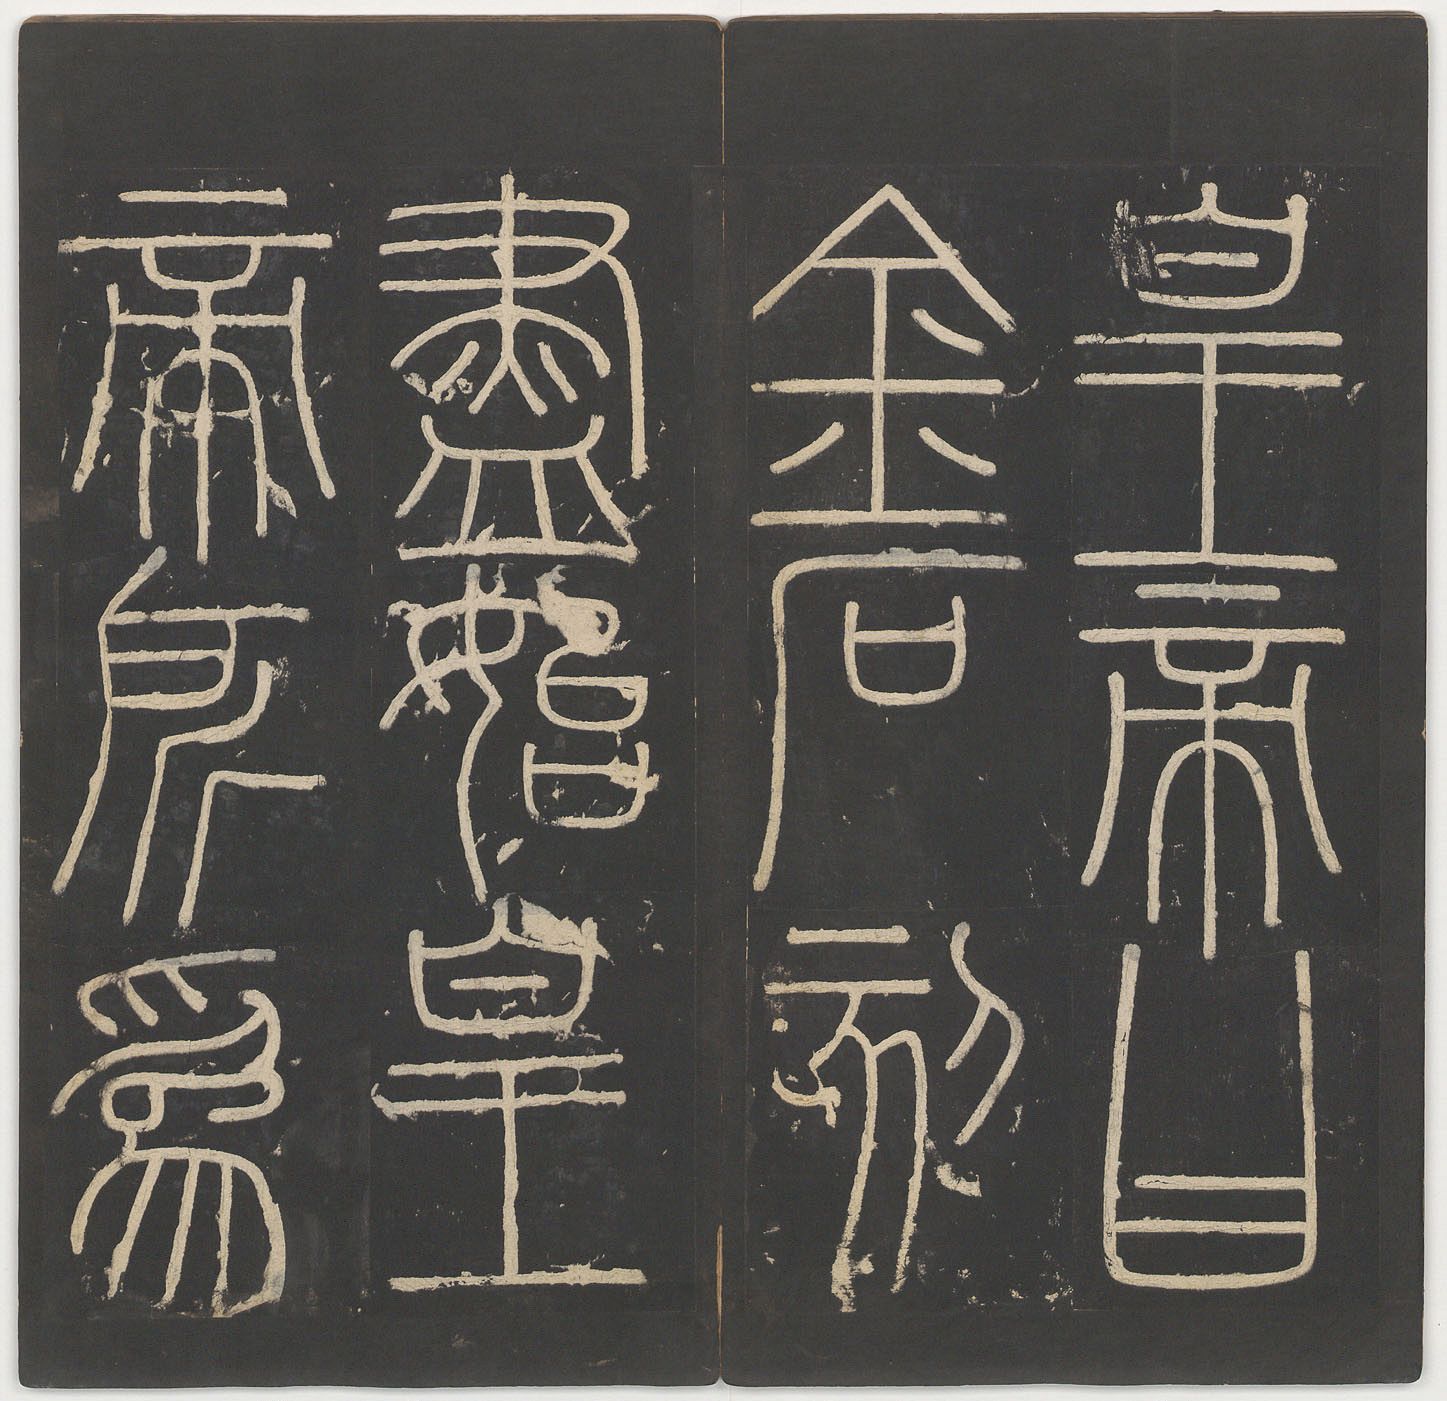 皇帝曰
金石刻
盡始皇
帝所為